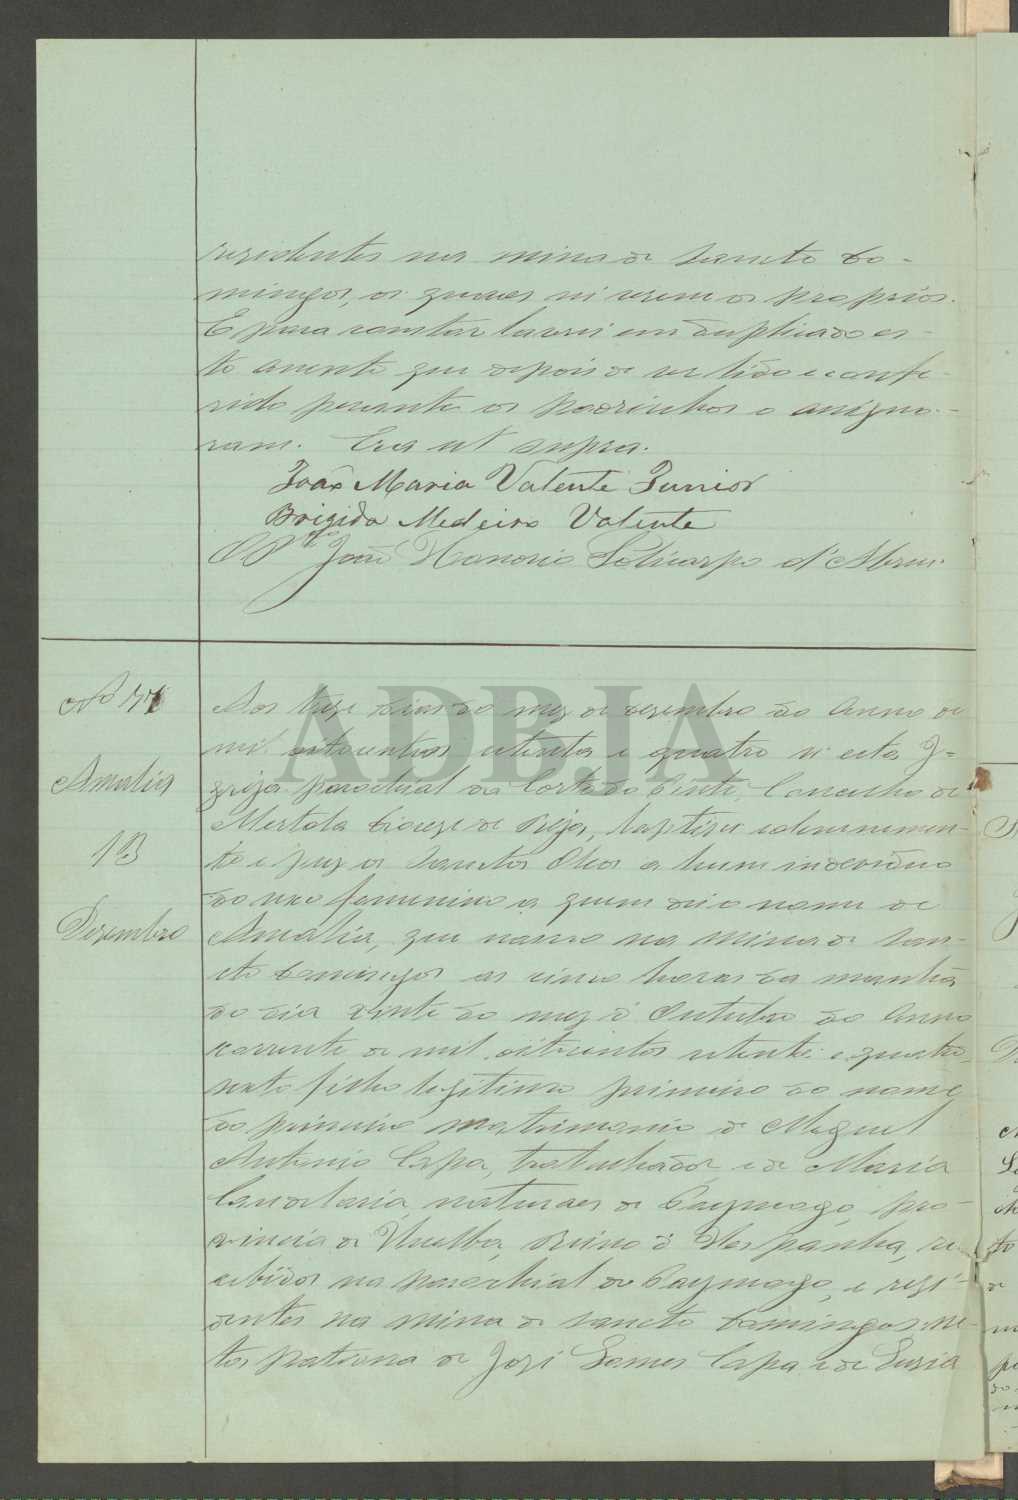 residentes na mina de Sancto Do-
mingos, os quaes sei serem os proprios.
E para constar lavrei em duplicado es-
te assento que depois de ser lido e confe-
rido perante os padrinhos o assigna-
ram. Era ut supra.
João Maria Valente Junior
Brigida Medeiro Valente
O P.e João Honorio Policarpo d'Abreu.
Nº 77
Amalia
13
Dezembro
Aos treze dias do mez de Dezembro do Anno de
mil oitocentos setenta e quatro n'esta I-
greja parochial da Corte do Pinto, Concelho de
Mertola Diocese de Beja, baptisei solemnemen-
te e puz os Sanctos Oleos a hum individuo
do sexo femenino a quem dei o nome de
Amalia, que nasceu na mina de San-
cto Domingos as cinco horas da manhã
do dia vinte do mez d'Outubro do Anno
corrente de mil oitocentos setenta e quatro
sexto filho legitimo primeiro do nome
do primeiro matrimonio de Miguel
Antonio Capa, trabalhador e de Maria
Candelaria, naturaes de Paymogo, pro-
vincia de Huelba, Reino d'Hespanha, re-
cebidos na parochial de Paymogo, e resi-
dentes na mina de Sancto Domingos ne-
ta paterna de José Gomes Capa e de Luzia
ADBJA